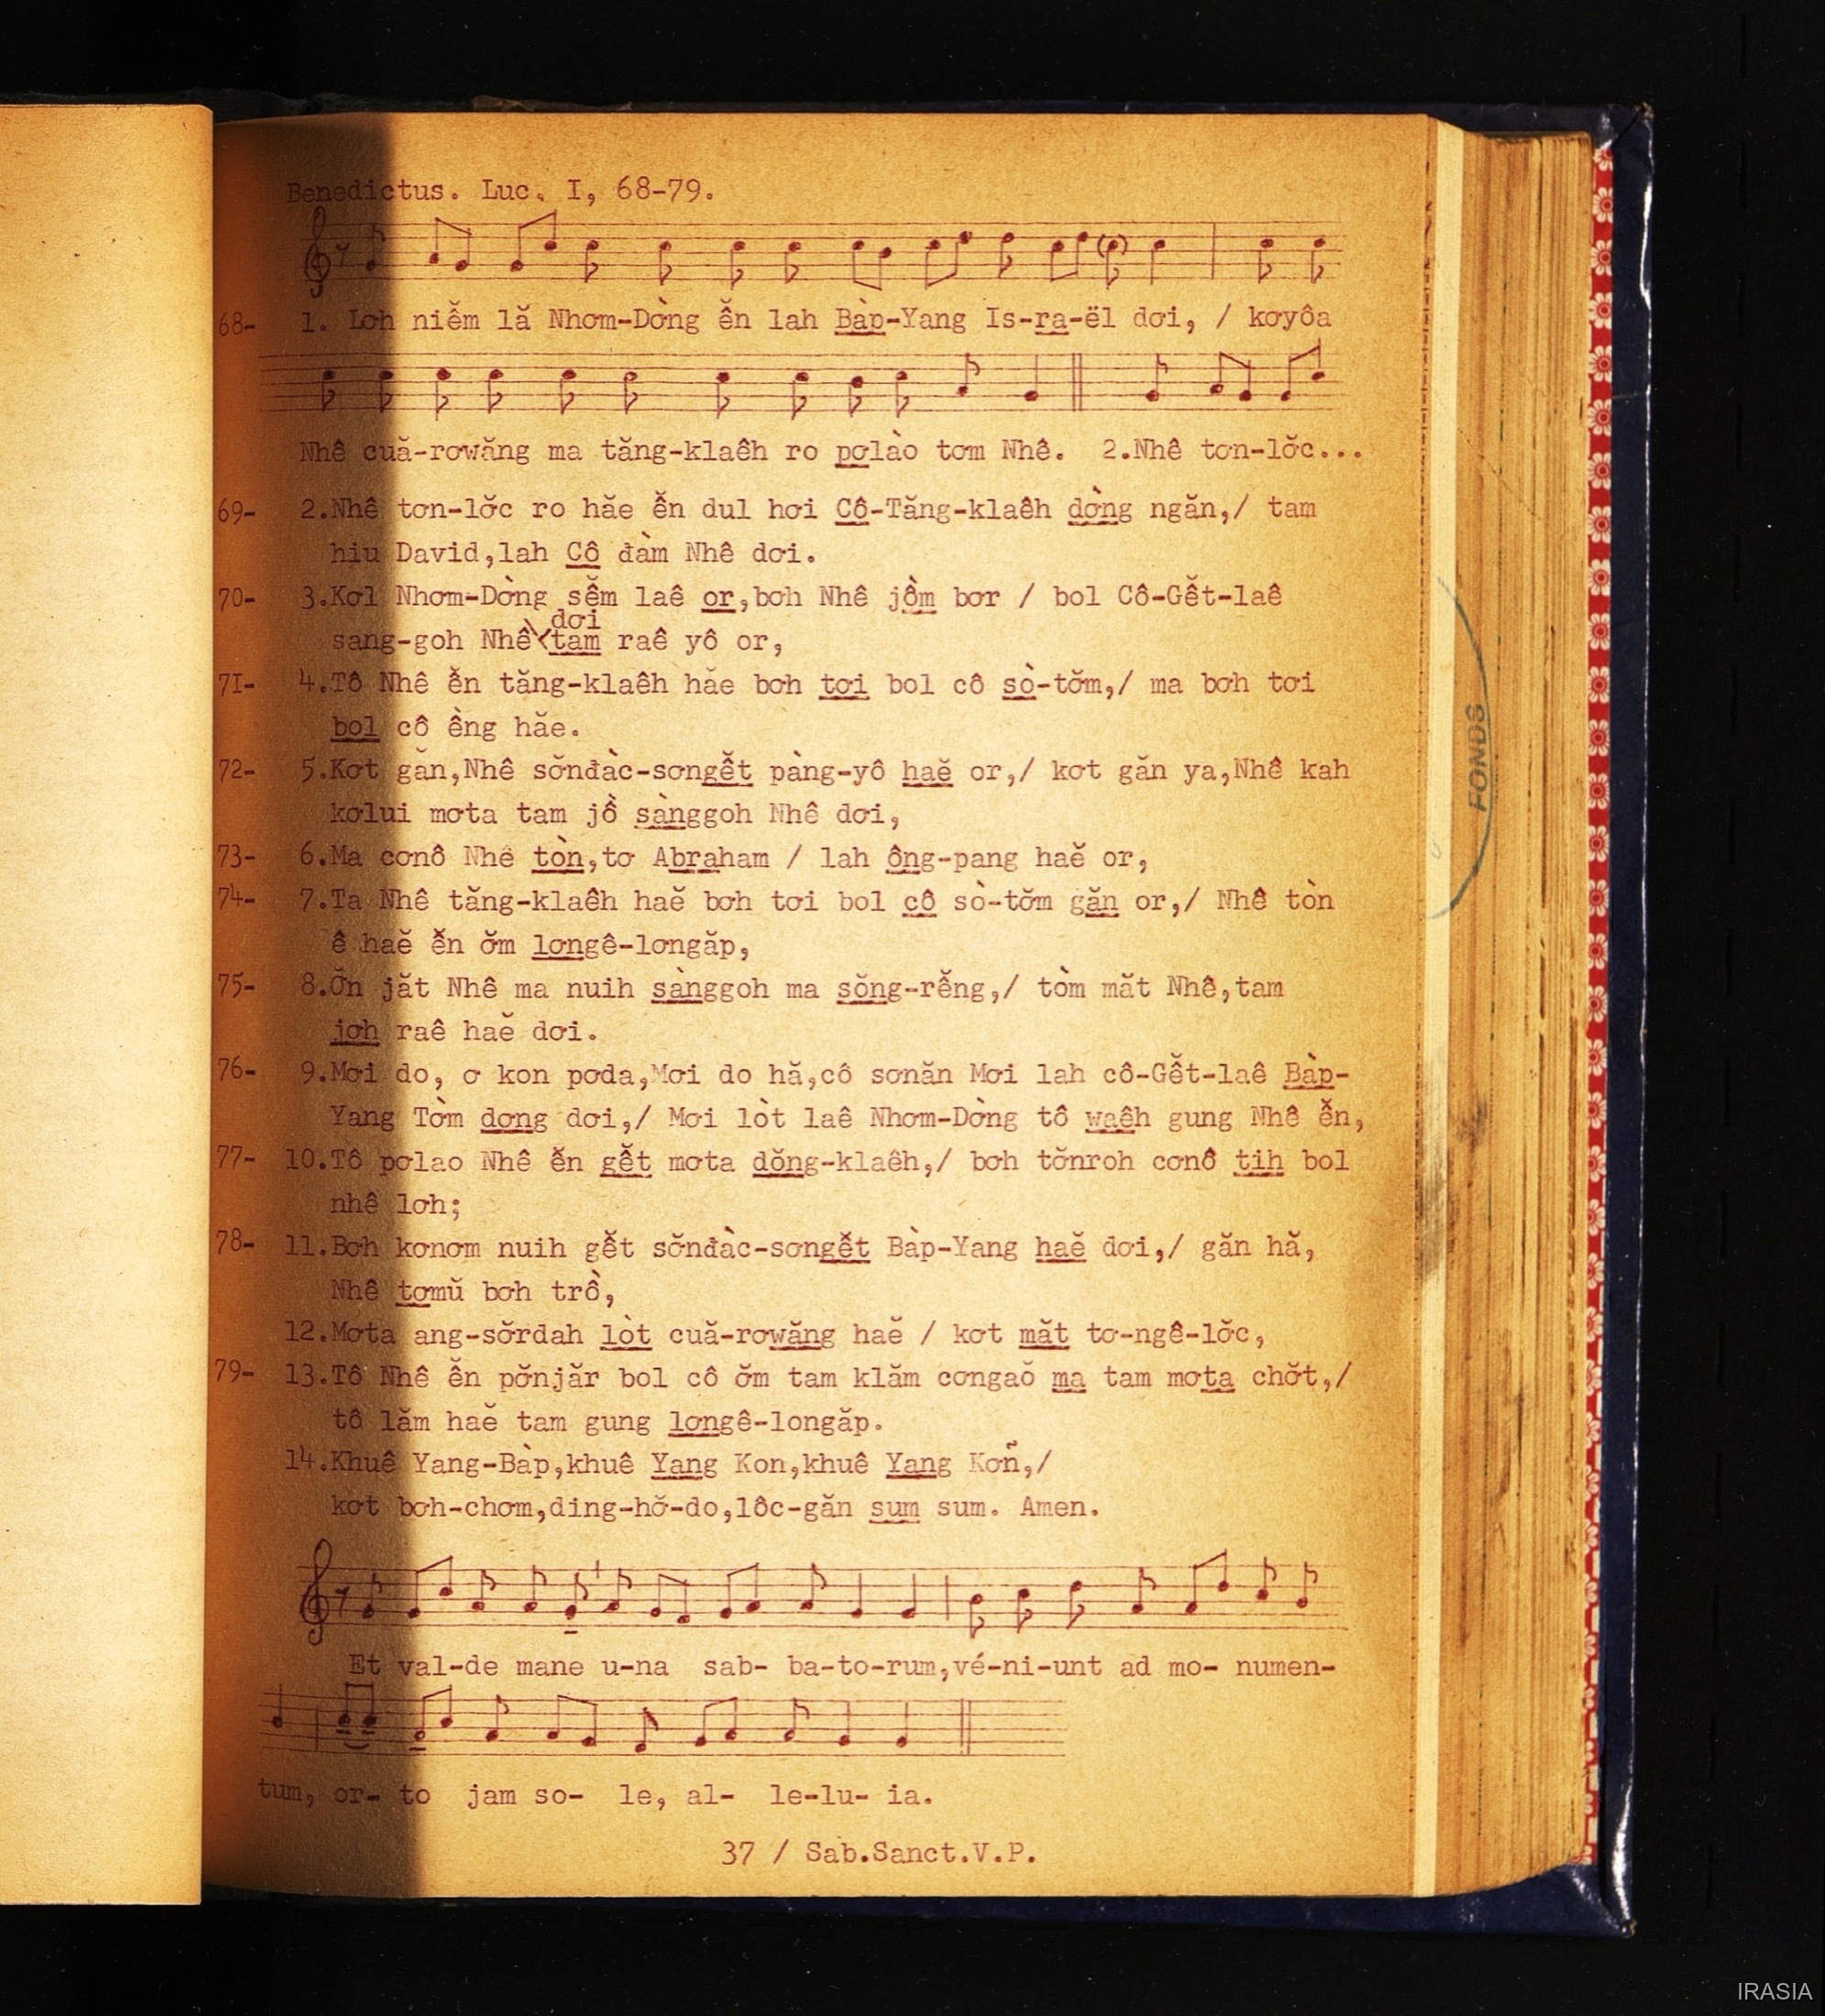 Benedictus. Luc. I, 68-79.
68- 1. Lơh niễm lă Nhơm-Dờng ễn lah Bàp-Yang Is-ra-ël dơi, / kơyôa
Nhê cuă-rơwăng ma tăng-klaêh ro pơlào tơm Nhê. 2.Nhê tơn-lơ̆c...
69- 2.Nhê tơn-lơ̆c ro hăe ễn dul hơi Cô-Tăng-klaêh dờng ngăn,/ tam
hiu David,lah Cô đàm Nhê dơi.
70- 3.Kơl Nhơm-Dờng sễm laê or,bơh Nhê jồm bơr / bol Cô-Gễt-laê
dơi
sang-goh Nhê tam raê yô or,
7I- 4.Tô Nhê ễn tăng-klaêh hăe bơh tơi bol cô sò-tơ̆m,/ ma bơh tơi
bol cô ềng hăe.
72- 5.Kơt găn,Nhê sơ̆nđàc-sơngễt pàng-yô haĕ or,/ kơt găn ya,Nhê kah
kơlui mơta tam jồ sànggoh Nhê dơi,
73- 6.Ma cơnô Nhê tòn,tơ Abraham / lah ông-pang haĕ or,
74- 7.Ta Nhê tăng-klaêh haĕ bơh tơi bol cô sò-tơ̆m găn or,/ Nhê tòn
ê haĕ ễn ơ̆m lơngê-lơngăp,
75- 8.Ơ̆n jăt Nhê ma nuih sànggoh ma sŏng-rễng,/ tòm măt Nhê,tam
jơh raê haĕ dơi.
76- 9.Mơi do, ơ kon pơda,Mơi do hă,cô sơnăn Mơi lah cô-Gễt-laê Bàp-
Yang Tờm dơng dơi,/ Mơi lòt laê Nhơm-Dờng tô waêh gung Nhê ễn,
77- 10.Tô pơlao Nhê ễn gễt mơta dŏng-klaêh,/ bơh tơ̆nroh cơnô tih bol
nhê lơh;
78- 11.Bơh kơnơm nuih gễt sơ̆nđàc-sơngễt Bàp-Yang haĕ dơi,/ găn hă,
Nhê tơmŭ bơh trồ,
12.Mơta ang-sơ̆rdah lòt cuă-rơwăng haĕ / kơt măt tơ-ngê-lơ̆c,
79- 13.Tô Nhê ễn pơ̆njăr bol cô ơ̆m tam klăm cơngaŏ ma tam mơta chơ̆t,/
tô lăm haĕ tam gung lơngê-longăp.
14.Khuê Yang-Bàp,khuê Yang Kon,khuê Yang Kơn̆,/
kơt bơh-chơm,ding-hơ̆-do,lôc-găn sum sum. Amen.
Et val-de mane u-na sab- ba-to-rum,vé-ni-unt ad mo- numen-
tum, or- to jam so- le, al- le-lu- ia.
37 / Sab.Sanct.V.P.
FONDS
IRASIA